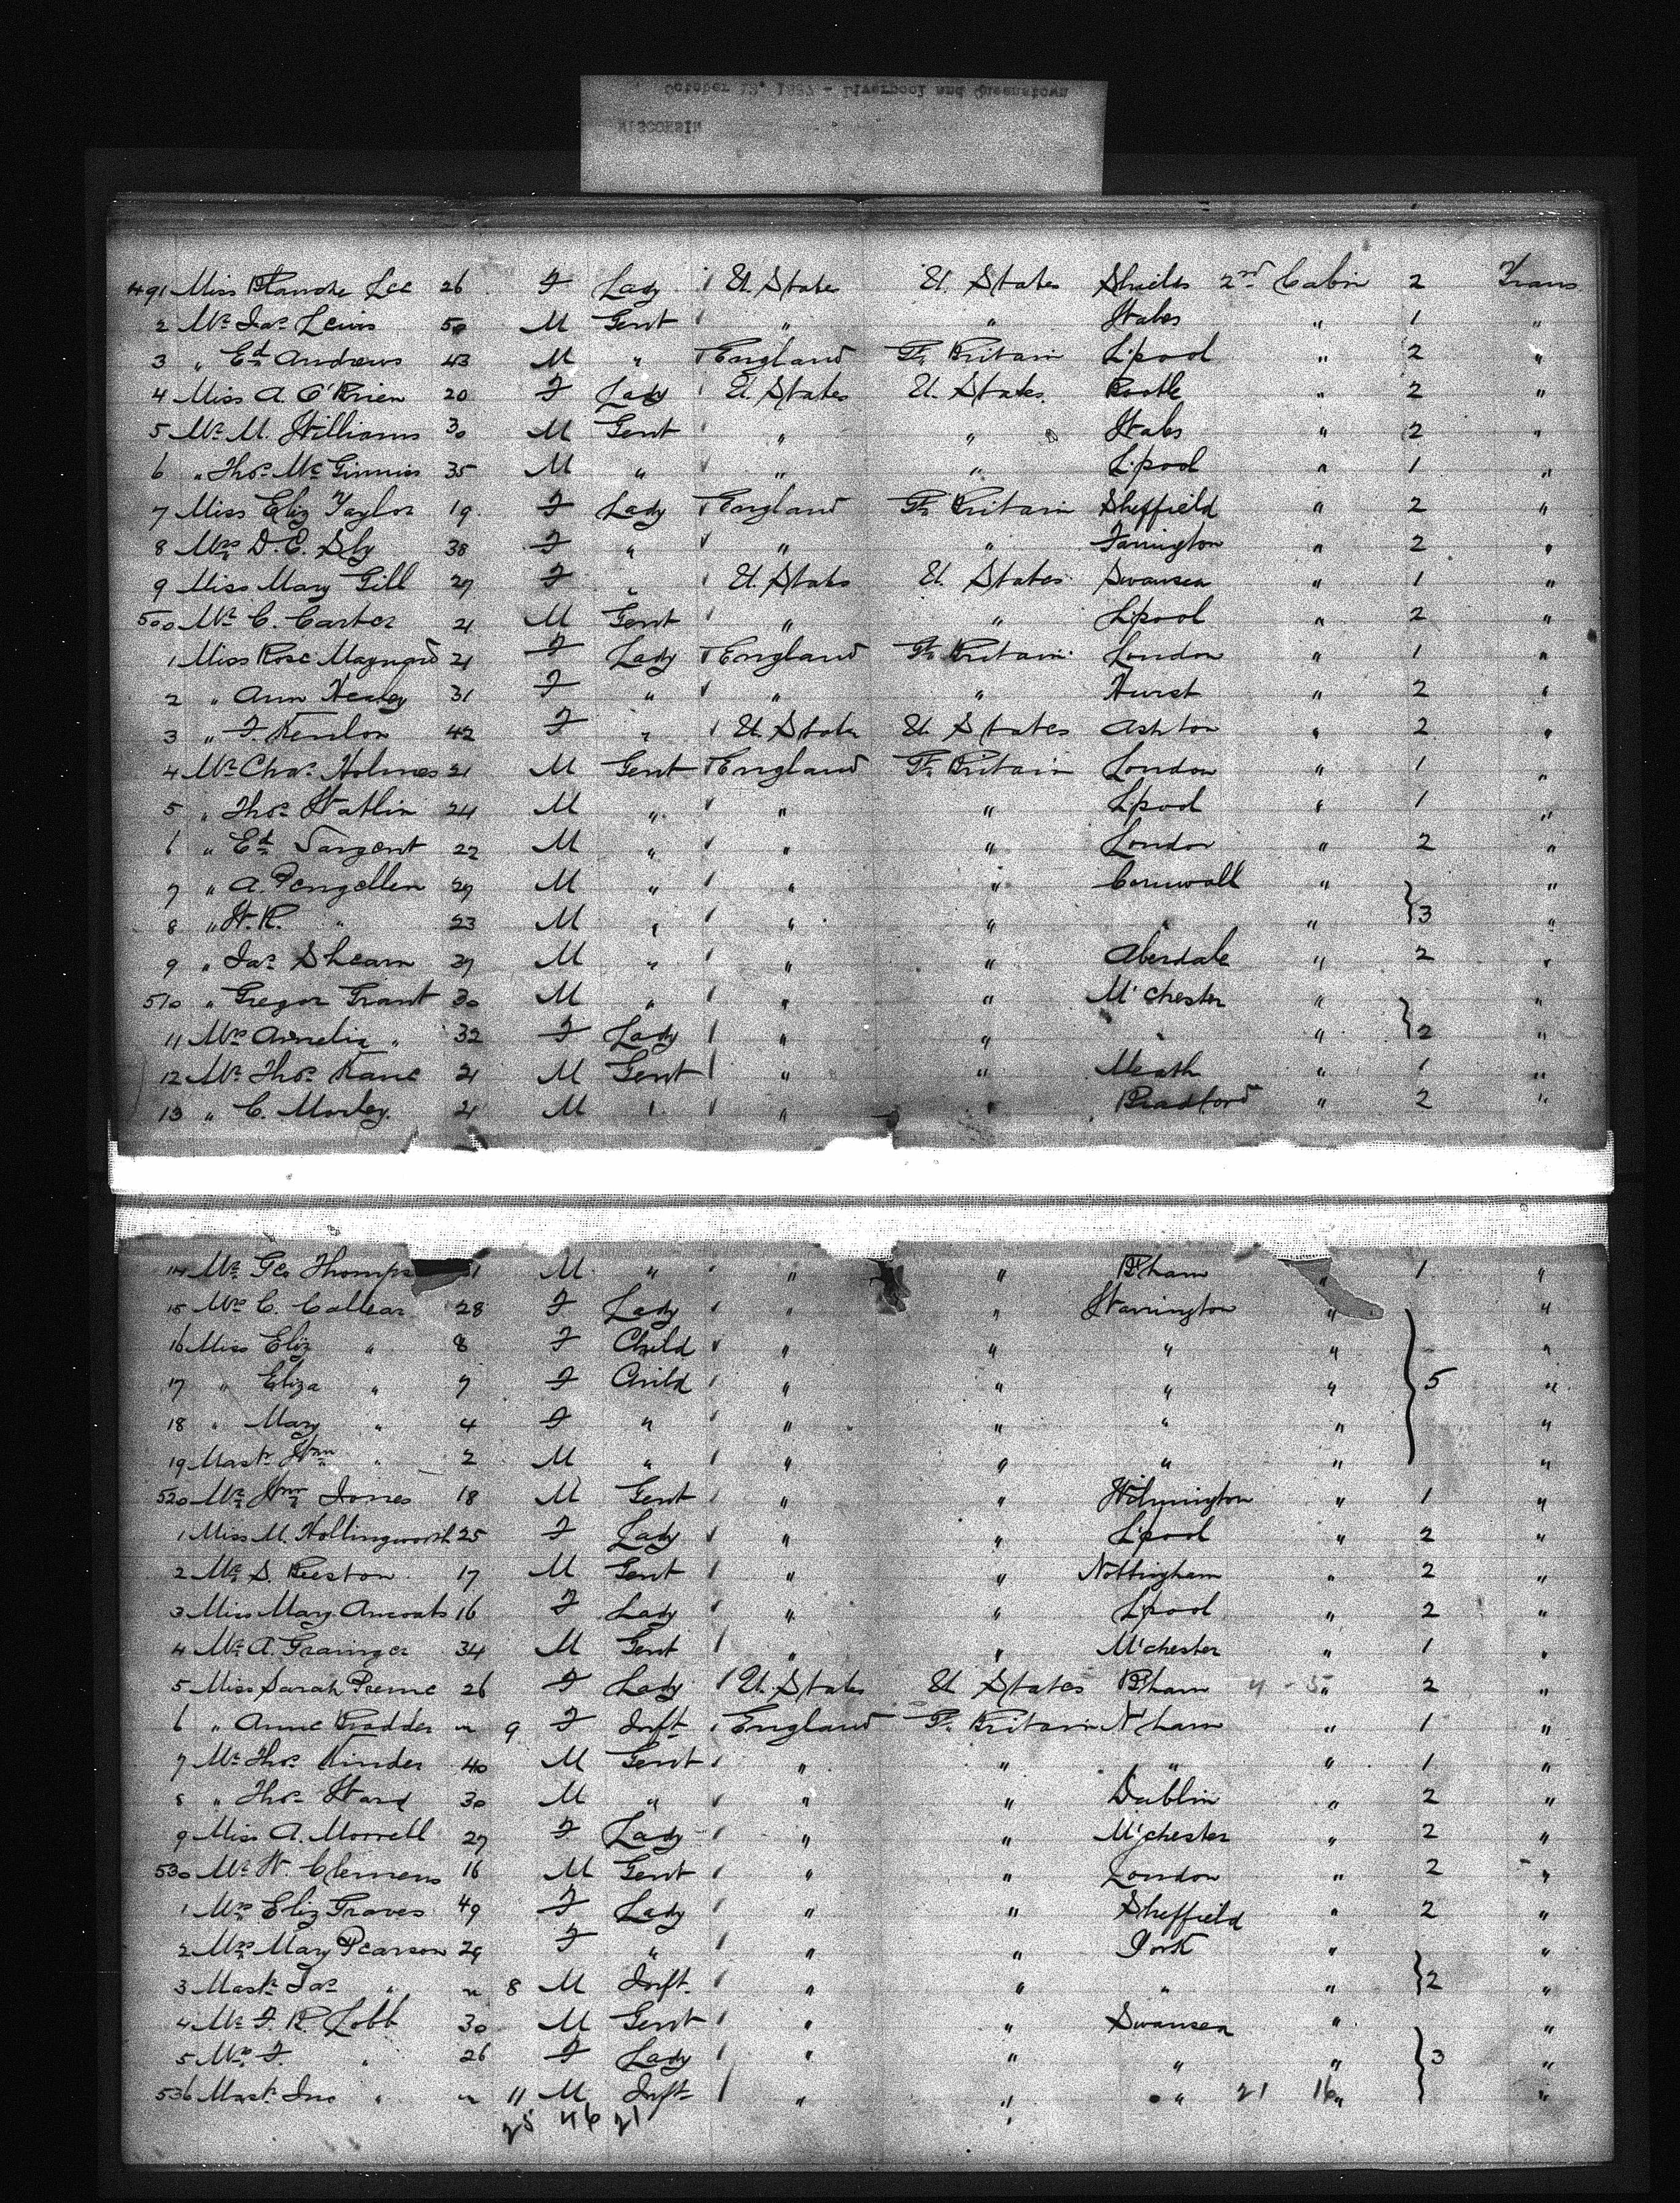 October 13, 1887 - Liverpool and Queenstown
WISCONSIN
491 Miss Blanche Lee 26 F Lady U. States U. States Shields 2nd Cabin 2 Trans
2 Mr Jas Lewis 50 M Gent " " Wales " 1 "
3 " Ed Andrews 43 M " England Gt Britain L'pool " 2 "
4 Miss A O'Brien 20 F Lady U. States U. States Bootle " 2 "
5 Mr M. Williams 30 M Gent " " Wales " 2 "
6 " Thos McGinniss 35 M " " " L'pool " 1 "
7 Miss Eliz Taylor 19 F Lady England Gt Britain Sheffield " 2 "
8 Mrs D. E. Sly 38 F " " " Farrington " 2 "
9 Miss Mary Gill 27 F " U. States U. States Swansea " 1 "
500 Mr C. Carter 21 M Gent " " L'pool " 2 "
1 Miss Rose Maynard 21 F Lady England Gt Britain London " 1 "
2 " Ann Healey 31 F " " " Hurst " 2 "
3 " F. Kenlon 42 F " U. States U. States Ashton " 2 "
4 Mr Chas Holmes 21 M Gent England Gt Britain London " 1 "
5 " Thos Watlin 24 M " " " L'pool " 1 "
6 " Ed Sargent 22 M " " " London " 2 "
7 " A. Pengellen 29 M " " " Cornwall " "
8 " W. R. " 23 M " " " " " 3 "
9 " Jas Shearn 39 M " " " Aberdale " 2 "
510 " Gregor Grant 30 M " " " M'chester " "
11 Mrs Amelia " 32 F Lady " " " " 2 "
12 Mr Thos Kane 21 M Gent " " Meath " 1 "
13 " C. Morley 21 M " " Bradford " 2 "
14 Mr Geo Thomps 1 M " " " B'ham " 1 "
15 Mrs C. Callear 28 F Lady " " Warrington " "
16 Miss Eliz " 8 F Child " " " " "
17 " Eliza " 7 F Child " " " " 5 "
18 " Mary " 4 F " " " " " "
19 Mastr Wm " 2 M " " " " " "
520 Mr Wm Jones 18 M Gent " " Wilmington " 1 "
1 Miss M. Hollingworth 25 F Lady " " L'pool " 2 "
2 Mr S. Beeston 17 M Gent " " Nottingham " 2 "
3 Miss Mary Ancoats 16 F Lady " " L'pool " 2 "
4 Mr A. Grainger 34 M Gent " " M'chester " 1 "
5 Miss Sarah 26 F Lady U. States U. States B'ham " 2 "
6 " Anne Bradder " 9 F Inft England Gt Britain N'ham " 1 "
7 Mr Thos Kinder 40 M Gent " " " " 1 "
8 " Thos Ward 30 M " " " Dublin " 2 "
9 Miss A. Morrell 27 F Lady " " M'chester " 2 "
530 Mr W. Clemens 16 M Gent " " London " 2 "
1 Mrs Eliz Graves 49 F Lady " " Sheffield " 2 "
2 Mrs Mary Pearson 29 F " " " York " "
3 Mastr Jas " " 8 M Inft " " " " 2 "
4 Mr F. R. Lobb 30 M Gent " " Swansea " "
5 Mrs F. " 26 F Lady " " " " 3 "
536 Mastr Jno " " 11 M Inft " " " 21 16 " "
25 46 21